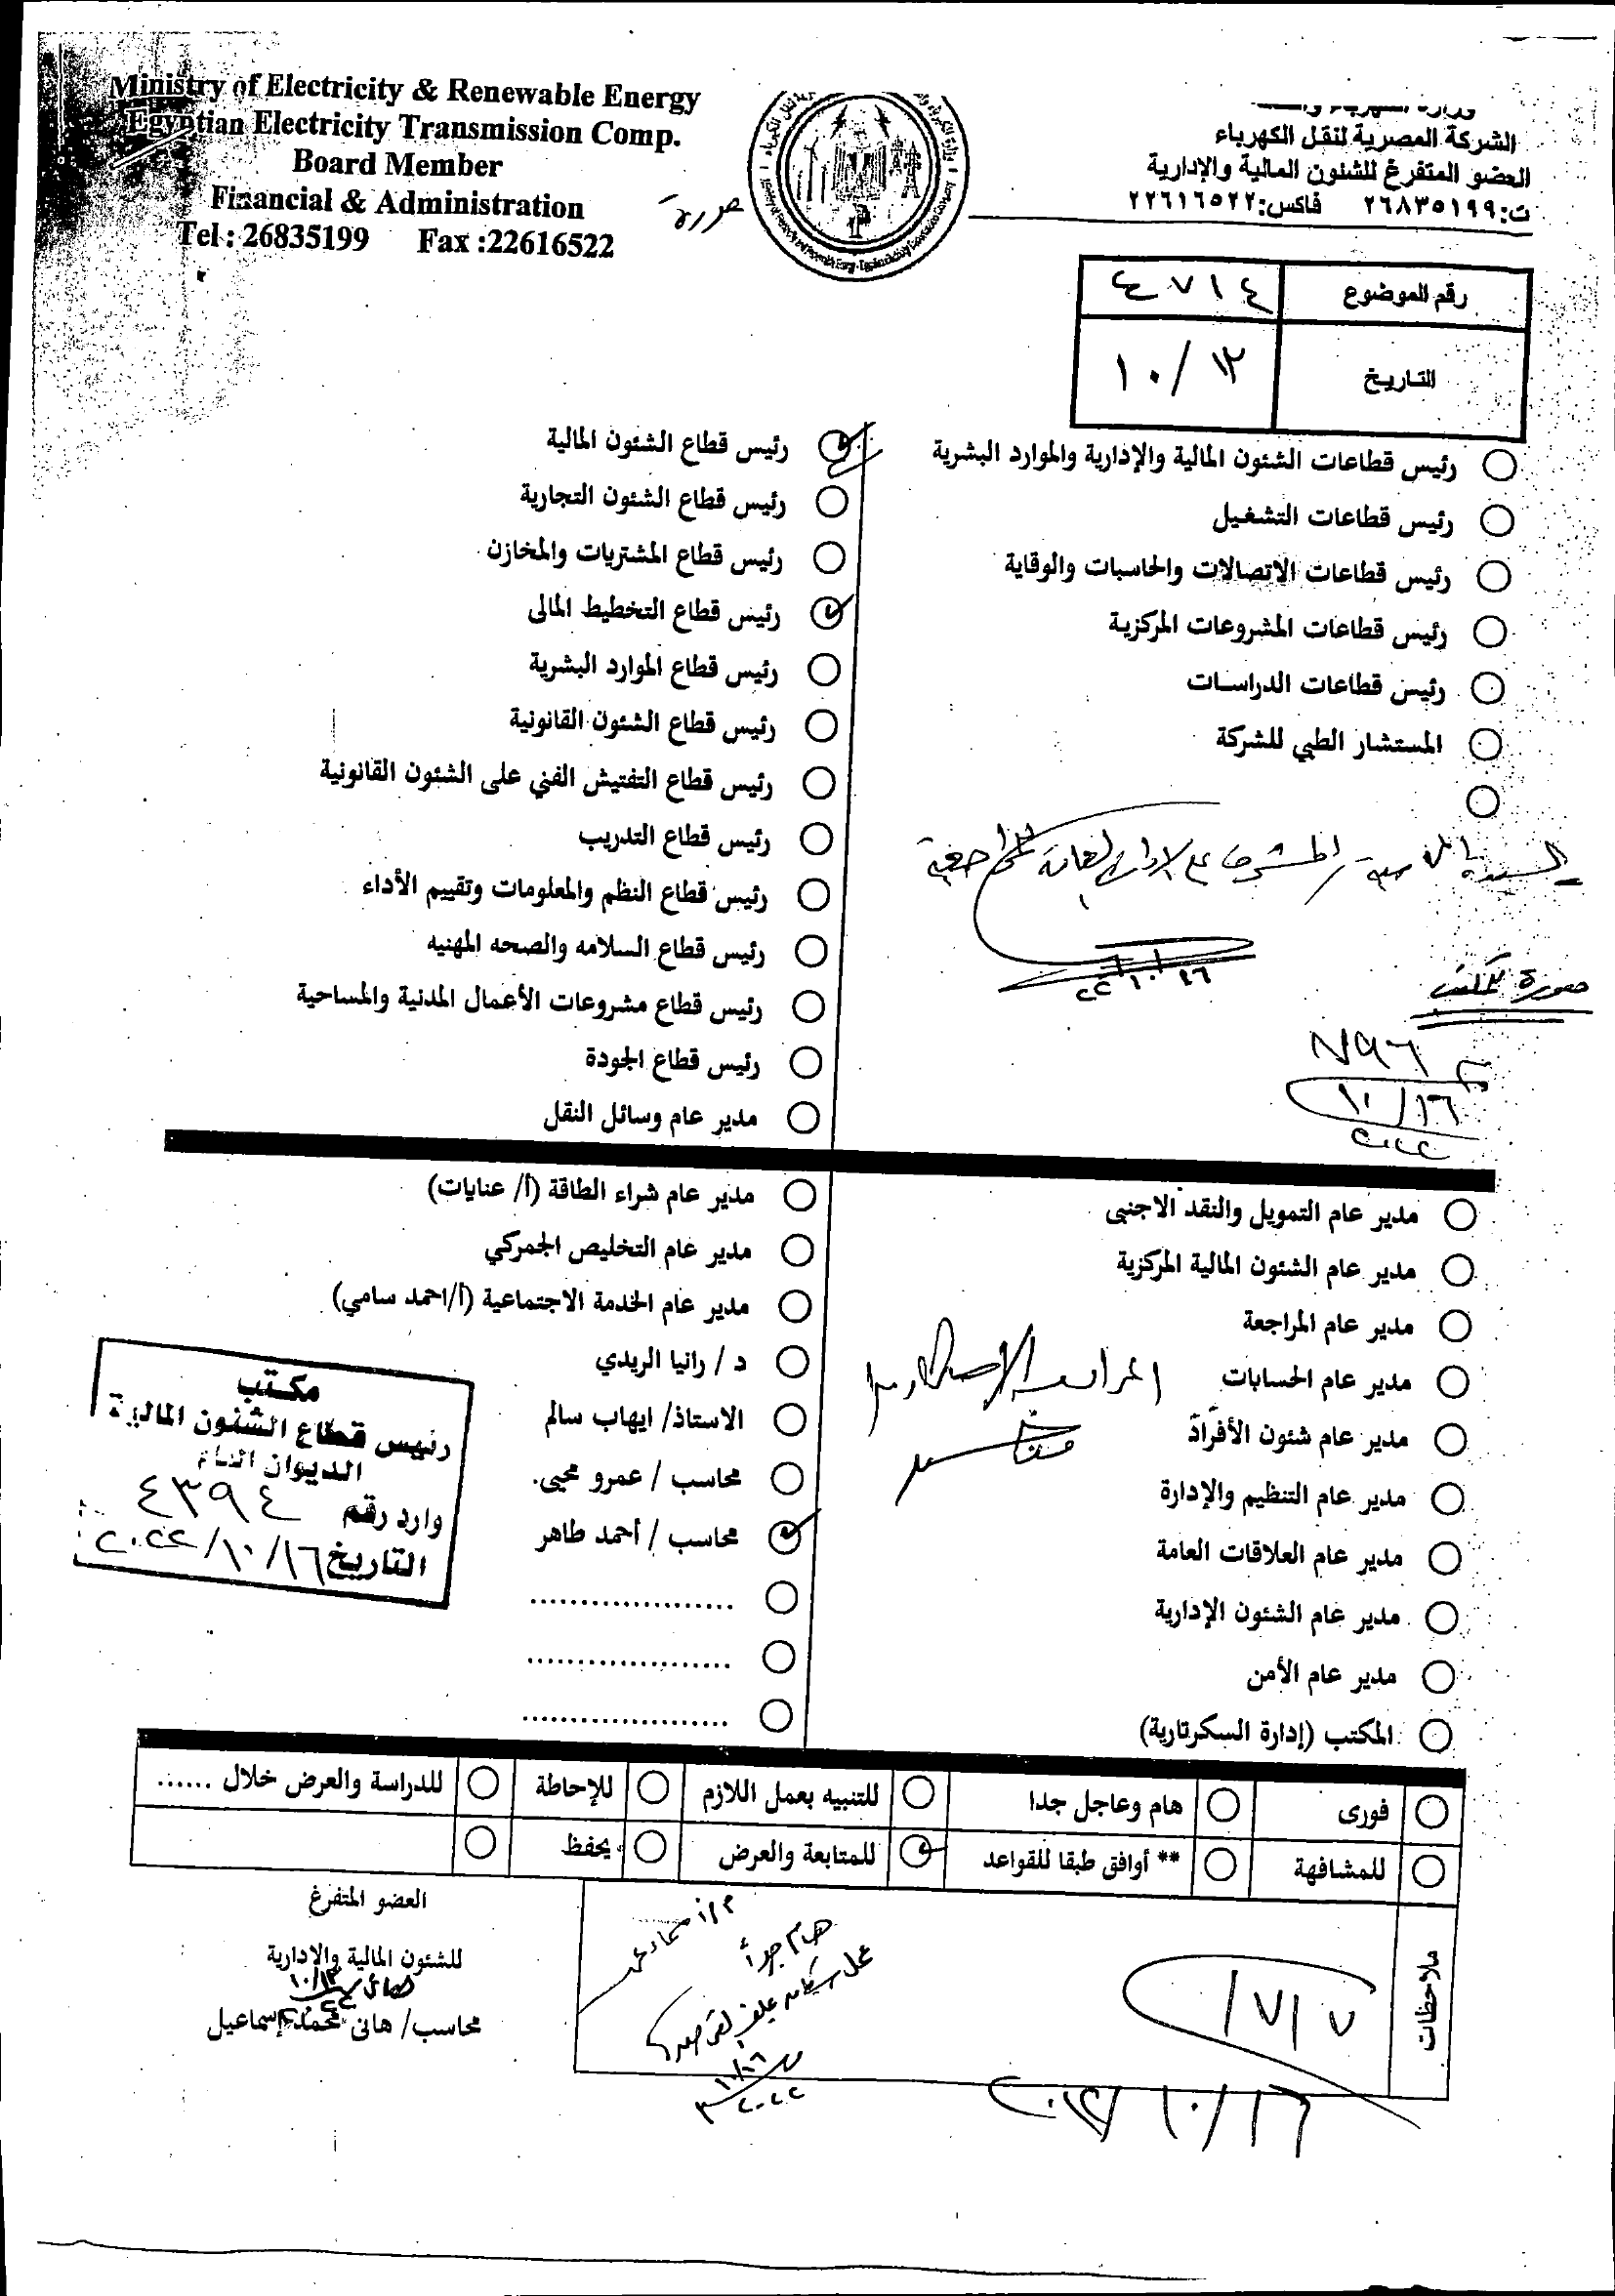 Ministry of Electricity & Renewable Energy
Egyptian Electricity Transmission Comp.
Board Member
Financial & Administration
Tel : 26835199 Fax :22616522
صورة
الشركة المصرية لنقل الكهرباء
العضو المتفرغ للشئون المالية والإدارية
ت:٢٦٨٣٥١٩٩ فاكس:٢٢٦١٦٥٢٢
رقم الموضوع ٤٧١٤
التاريخ ١٠/١٣
رئيس قطاعات الشئون المالية والإدارية والموارد البشرية
رئيس قطاعات التشغيل
رئيس قطاعات الاتصالات والحاسبات والوقاية
رئيس قطاعات المشروعات المركزية
رئيس قطاعات الدراسات
المستشار الطبي للشركة
رئيس قطاع الشئون المالية
رئيس قطاع الشئون التجارية
رئيس قطاع المشتريات والمخازن
رئيس قطاع التخطيط المالى
رئيس قطاع الموارد البشرية
رئيس قطاع الشئون القانونية
رئيس قطاع التفتيش الفني على الشئون القانونية
رئيس قطاع التدريب
رئيس قطاع النظم والمعلومات وتقييم الأداء
رئيس قطاع السلامه والصحه المهنيه
رئيس قطاع مشروعات الأعمال المدنية والمساحية
رئيس قطاع الجودة
مدير عام وسائل النقل
صورة للمكتب
١٠/١٦
٢٠٢٢
مدير عام التمويل والنقد الاجنبى
مدير عام الشئون المالية المركزية
مدير عام المراجعة
مدير عام الحسابات
مدير عام شئون الأفراد
مدير عام التنظيم والإدارة
مدير عام العلاقات العامة
مدير عام الشئون الإدارية
مدير عام الأمن
المكتب (إدارة السكرتارية)
مدير عام شراء الطاقة (أ/ عنايات)
مدير عام التخليص الجمركي
مدير عام الخدمة الاجتماعية (أ/احمد سامي)
د / رانيا الريدي
الاستاذ/ ايهاب سالم
محاسب / عمرو محيى.
محاسب / أحمد طاهر
....................
....................
....................
مكتب
رئيس قطاع الشئون المالية
الديوان العام
وارد رقم ٤٣٩٤
التاريخ ٢٠٢٢/١٠/١٦
فورى
هام وعاجل جدا
للتنبيه بعمل اللازم
للإحاطة
للدراسة والعرض خلال ......
للمشافهة
** أوافق طبقا للقواعد
للمتابعة والعرض
يحفظ
ملاحظات
١٧١٧
١٠/١٦
هام جداً
١٠/١٦
٢٠٢٢
العضو المتفرغ
للشئون المالية والإدارية
١٠/١٣
محاسب/ هانى محمد إسماعيل